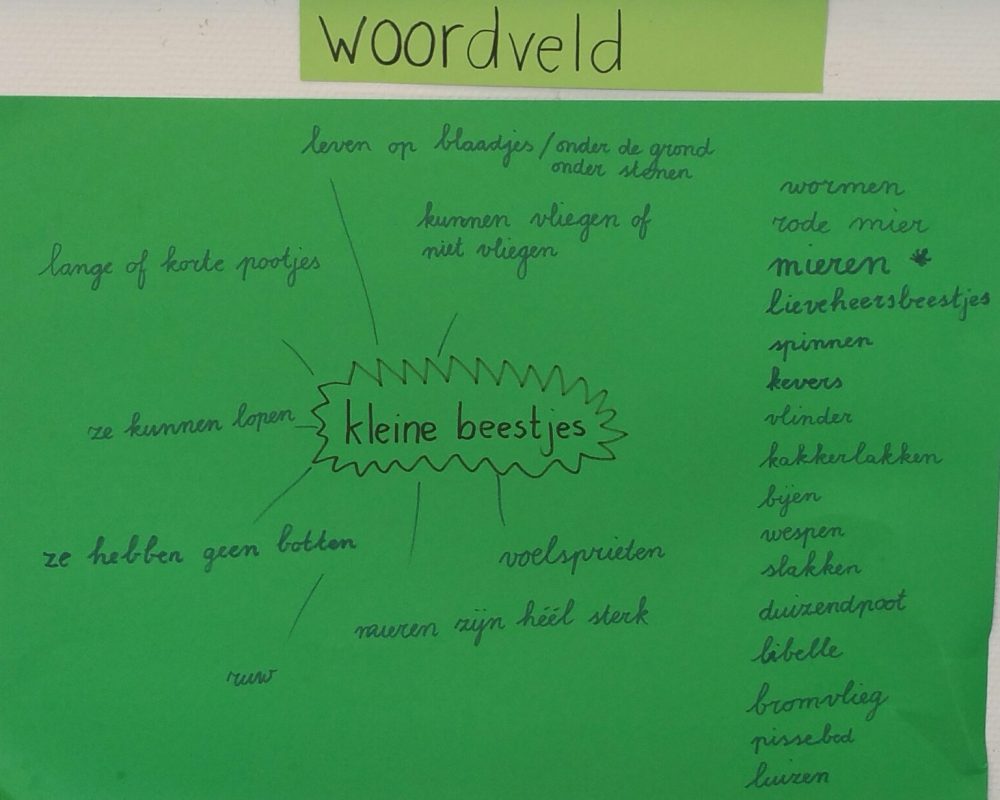 woordveld
leven op blaadjes / onder de grond
onder stenen
kunnen vliegen of
niet vliegen
lange of korte pootjes
kleine beestjes
ze kunnen lopen
ze hebben geen botten
voelsprieten
mieren zijn héél sterk
ruw
wormen
rode mier
mieren *
lieveheersbeestjes
spinnen
kevers
vlinder
kakkerlakken
bijen
wespen
slakken
duizendpoot
libelle
bromvlieg
pissebed
luizen